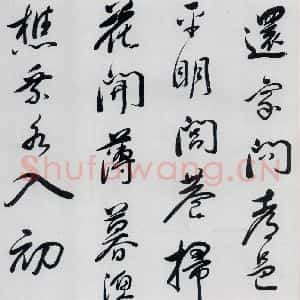 還家問都邑
平明閭巷掃
花開薄暮漁
樵乘水入初
Shufawang.CN